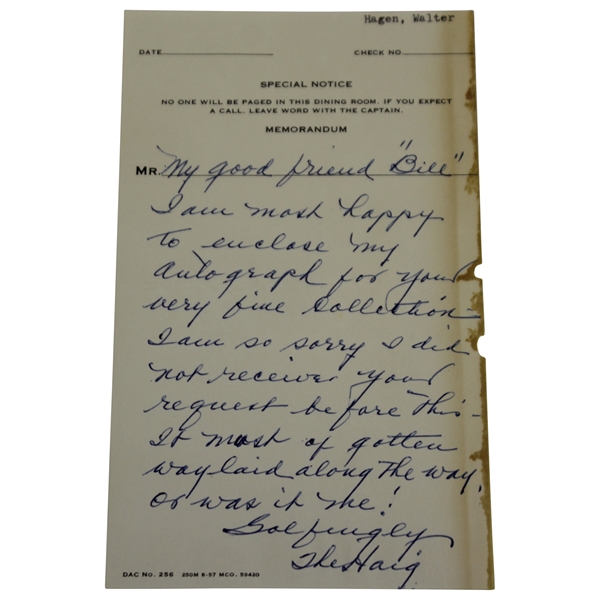 Hagen, Walter
DATE CHECK NO
SPECIAL NOTICE
NO ONE WILL BE PAGED IN THIS DINING ROOM. IF YOU EXPECT
A CALL. LEAVE WORD WITH THE CAPTAIN.
MEMORANDUM
MR. My good friend "Bill"
I am most happy
to enclose my
autograph for your
very fine collection -
I am so sorry I did
not receive your
request before this -
It most of gotten
waylaid along the way,
or was it me!
Golfingly
The Haig
DAC No. 256 250M 6-57 MCO. 59420